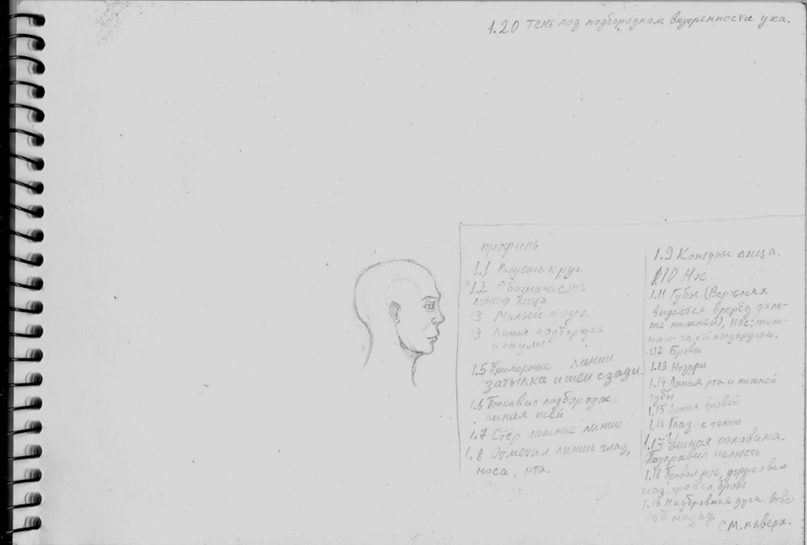 1.20 тень под подбородком внутренности уха.
профиль
1.1 Рисуем круг
1.2 Обозначаем
линию лица
1.3 Малый круг
1.4 Линия подбородка
и скулы
1.5 Примерные линии
затылка и шеи сзади
1.6 Поправил подбородок
линия шеи
1.7 Стёр лишние линии
1.8 Отметил линии глаз,
носа, рта.
1.9 Контуры лица.
1.10 Нос.
1.11 Губы (Верхняя
выдаётся вперёд
нижней),
1.12 Брови
1.13 Ноздри
1.14 Линия рта и нижней
губы
1.15 Линия бровей
1.16 Глаз
1.17 Ушная раковина.
Подправил челюсть
1.18 нос, дорисовал
глаз, бровь
1.19 Надбровная дуга.
назад
см. наверх.